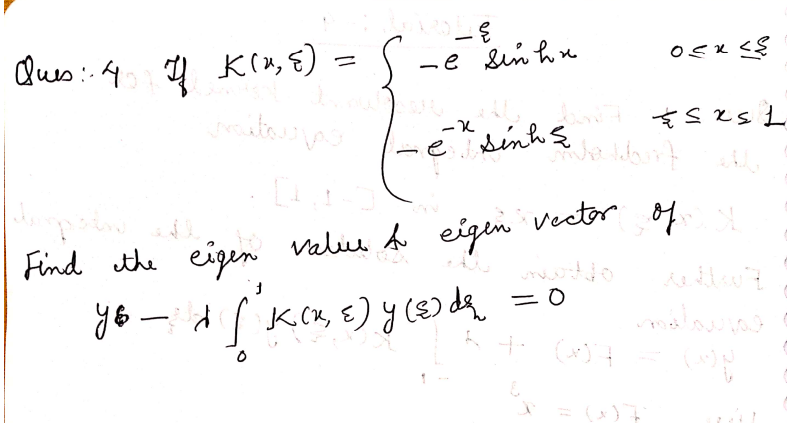 Ques:. 4 If K(x, ξ) = { -e^-ξ sinhx 0 ≤ x ≤ ξ
-e^-x sinhξ ξ ≤ x ≤ 1
Find the eigen value & eigen vector of
y - λ ∫₀¹ K(x, ξ) y(ξ) dξ = 0